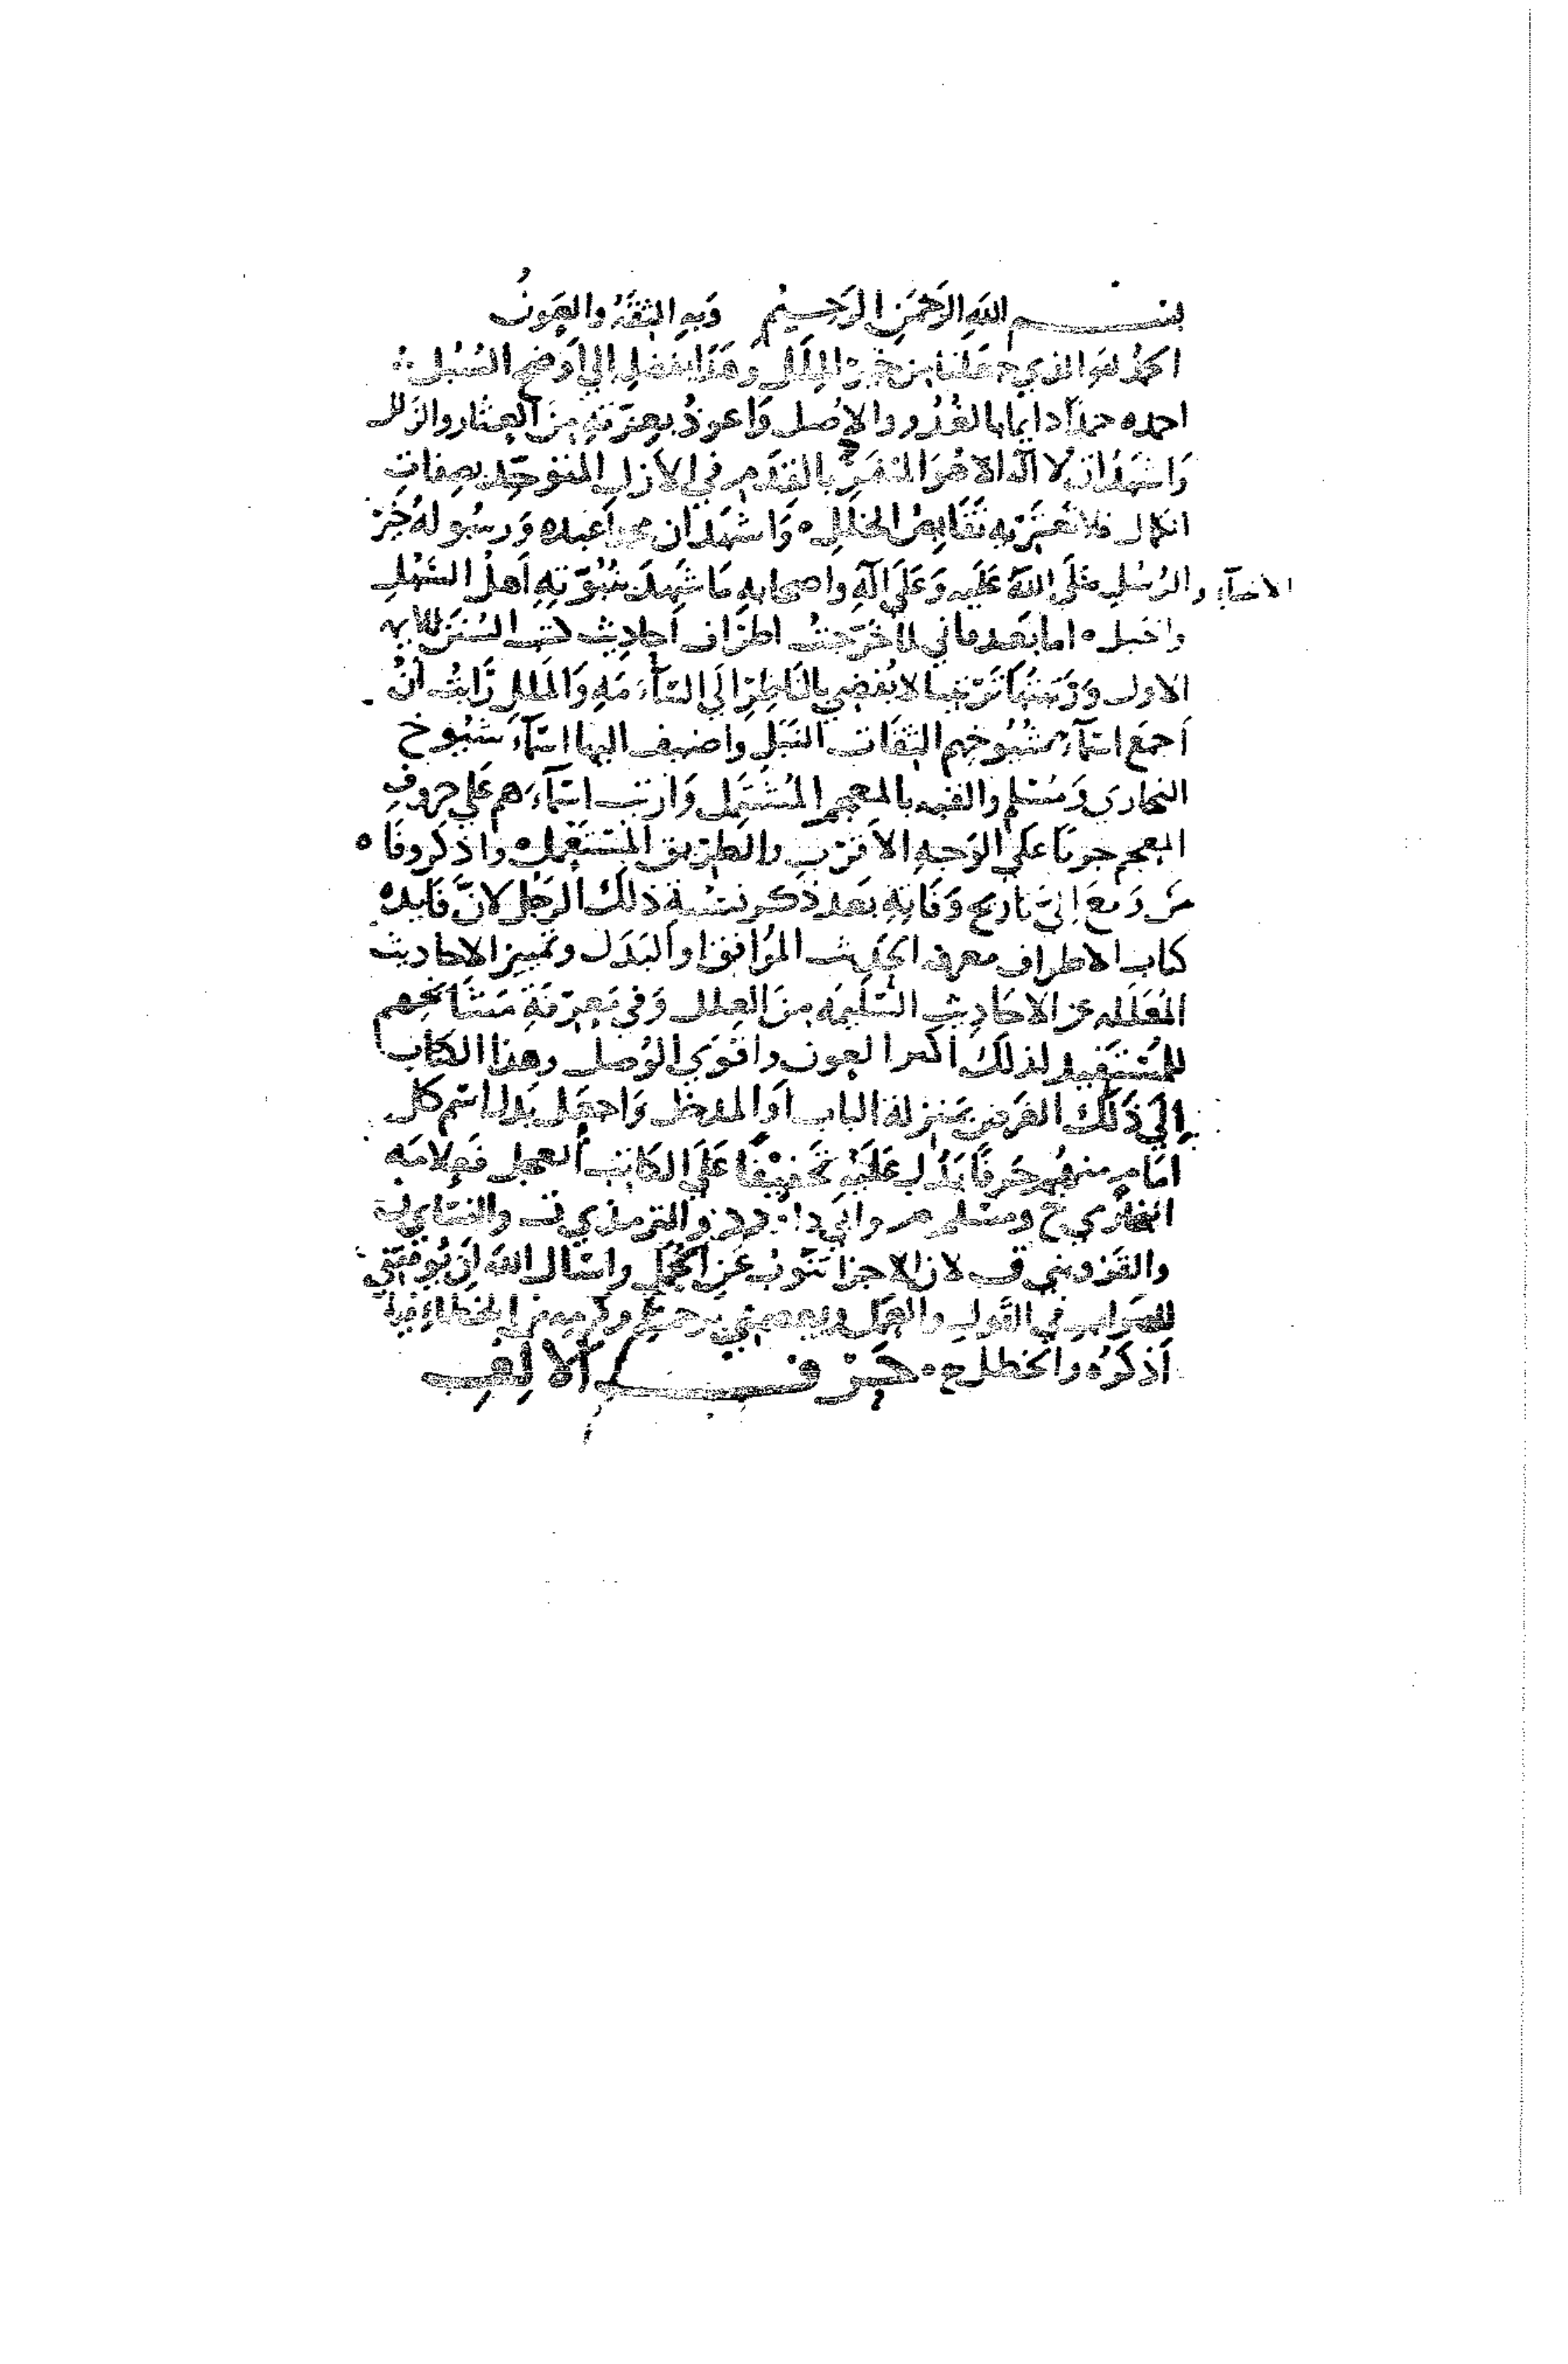 بسم الله الرحمن الرحيم وبه الثقة والعون
الحمد لله الذي جعلنا من خير الملل وهدانا بفضله إلى أوضح السبل
احمده حمدا دايما بالغدو والاصل واعوذ بعزته من العثار والزلل
واشهد ان لا اله الا هو المتفرد بالقدم في الازل المتوحد بصفات
الكمال فلا تعتريه نقايص الخلل وأشهد ان محمدا عبده ورسوله خير
الانبياء والرسل صلى الله عليه وعلى آله واصحابه ما شهد بنبوته أهل السهل
والجبل اما بعد فاني لما خرجت اطراف أحاديث كتب السنن للأيمه
الاول ورتبتها ترتيبا لا يفضي بالناظر إلى السآمه والملل رأيت أن
أجمع اسماء شيوخهم الثقات النبل واضيف اليها اسماء شيوخ
البخاري ومسلم والقبه بالمعجم المشتمل وارتب اسماءهم على حروف
المعجم حروفا على الوجه الأقرب والطريق المستعمل واذكر وفاة
من وقع إلي تاريخ وفاته بعد ذكر نسبة ذلك الرجل لان فايدة
كتاب الاطراف معرفه الحديث الموافق او البدل وتمييز الاحاديث
المعلله من الأحاديث السليمه من العلل وفي معرفة مشايخهم
للمستفيد لذلك أكبر العون واقوى الوصل وهذا الكتاب
إلى ذلك الغرض بمنزلة الباب أو المدخل واجعل بدل اسم كل
امام منهم حرفا يدل عليه تخفيفا على الكاتب العجل فعلامه
البخاري خ ومسلم م وابي داود د والترمذي ت والنسائي ن
والقزويني ق لان الاجزا تنوب عن الجمل واسأل الله أن يوفقني
للصواب في القول والعمل ويعصمني برحمته وكرمه من الخطاء فيما
أذكره والخطل ح حرف الألف